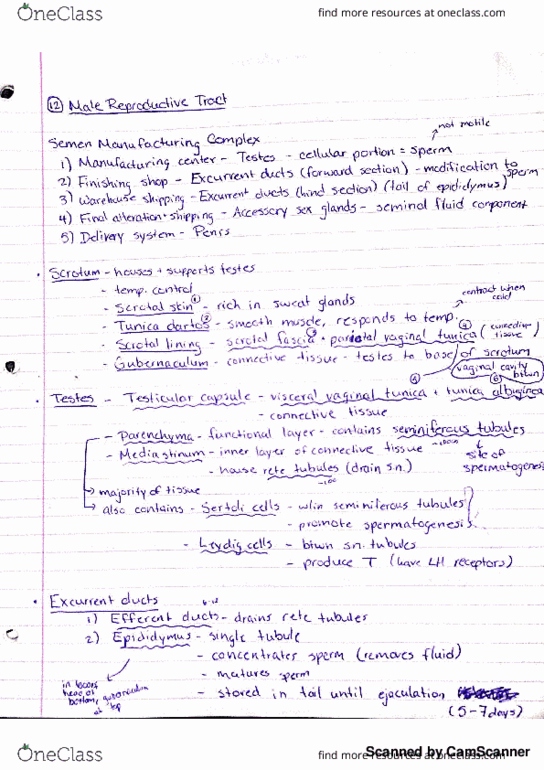 OneClass
find more resources at oneclass.com
12 Male Reproductive Tract
not motile
Semen Manufacturing Complex
1) Manufacturing center - Testes - cellular portion = sperm
2) Finishing shop - Excurrent ducts (forward section) - modification to sperm
3) Warehouse + shipping - Excurrent ducts (hind section) (tail of epididymus)
4) Final alteration + shipping - Accessory sex glands - seminal fluid component
5) Delivery system - Penis
• Scrotum - houses + supports testes
- temp. control
contract when cold
- Scrotal skin ① - rich in sweat glands
- Tunica dartos ② - smooth muscle, responds to temp.
- Scrotal lining - scrotal fascia ③ + parietal vaginal tunica ④ (connective tissue)
- Gubernaculum - connective tissue - testes to base of scrotum
vaginal cavity btwn
• Testes - Testicular capsule - visceral vaginal tunica + tunica albuginea
- connective tissue
- Parenchyma - functional layer - contains seminiferous tubules
- Mediastinum - inner layer of connective tissue
site of spermatogenesis
- house rete tubules (drain s.n.)
→ majority of tissue
→ also contains - Sertoli cells - w/in seminiferous tubules
- promote spermatogenesis
- Leydig cells - btwn s.n. tubules
- produce T (have LH receptors)
• Excurrent ducts
1) Efferent ducts - drains rete tubules
2) Epididymus - single tubule
- concentrates sperm (removes fluid)
- matures sperm
- stored in tail until ejaculation
(5-7 days)
in boars, head at bottom, gubernaculum at top
OneClass
find more resources at oneclass.com
Scanned by CamScanner